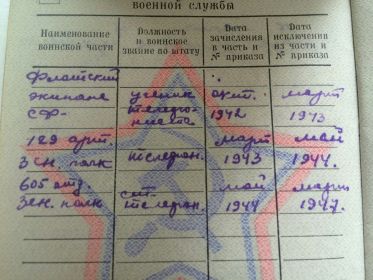 военной службы
Наименование воинской части
Должность и воинское звание по штату
Дата зачисления в часть и № приказа
Дата исключения из части и № приказа
Флотский
экипаж ученик окт. март
СФ- телефо- 1942 1943
ниста
129 арт. март май
Зен. полк телефон. 1943 1944.
605 отд. ст. май март
Зен. полк телефон. 1944 1947.